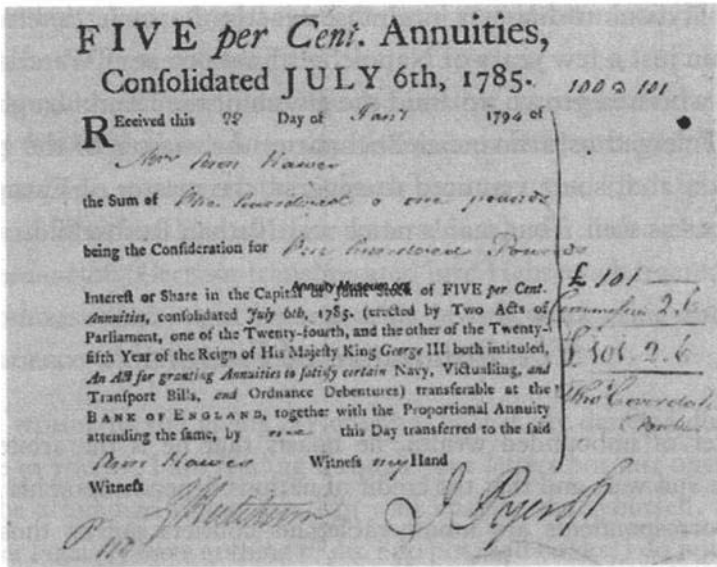 FIVE per Cent. Annuities,
Conſolidated JULY 6th, 1785.
100 @ 101
REceived this 22 Day of Jan 1794 of
Ann Hawes
the Sum of One hundred & one pounds
being the Conſideration for One hundred Pounds
AnnuityMuseum.org
Intereſt or Share in the Capital or Joint Stock of FIVE per Cent.
Annuities, conſolidated July 6th, 1785. (erected by Two Acts of
Parliament, one of the Twenty-fourth, and the other of the Twenty-
fifth Year of the Reign of His Majeſty King George III both intituled,
An Act for granting Annuities to ſatisfy certain Navy, Victualling, and
Tranſport Bills, and Ordnance Debentures) transferable at the
BANK OF ENGLAND, together with the Proportional Annuity
attending the ſame, by me this Day transferred to the ſaid
Ann Hawes Witneſs my Hand
Witneſs
£ 101
2.6
£ 101.2.6